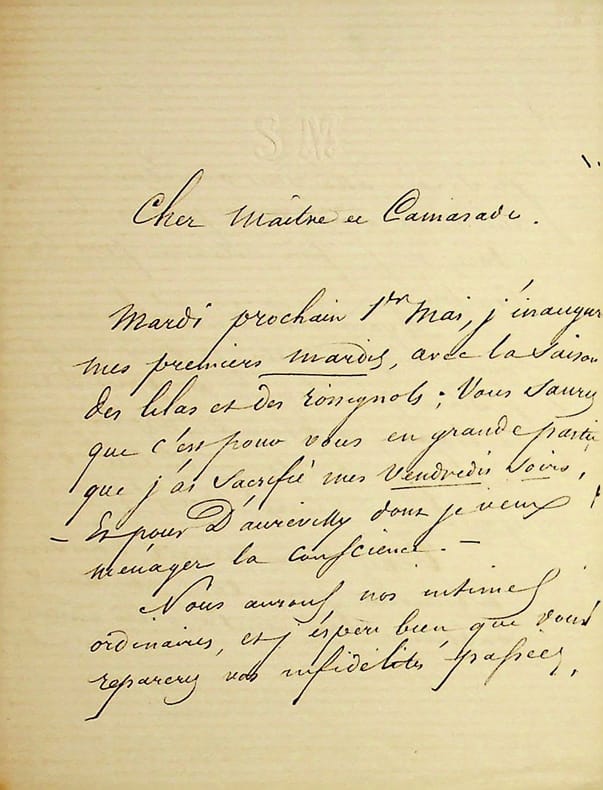 SM
Cher Maître et Camarade.
Mardi prochain 1er Mai, j'inaugure
mes premiers mardis, avec la saison
des lilas et des rossignols ; Vous saurez
que c'est pour vous en grande partie
que j'ai sacrifié mes vendredis soirs,
– Et pour D'aurévilly dont je veux
ménager la conscience. –
Nous aurons nos intimes
ordinaires, et j'éspère bien que vous
reparerez vos infidélités passées,